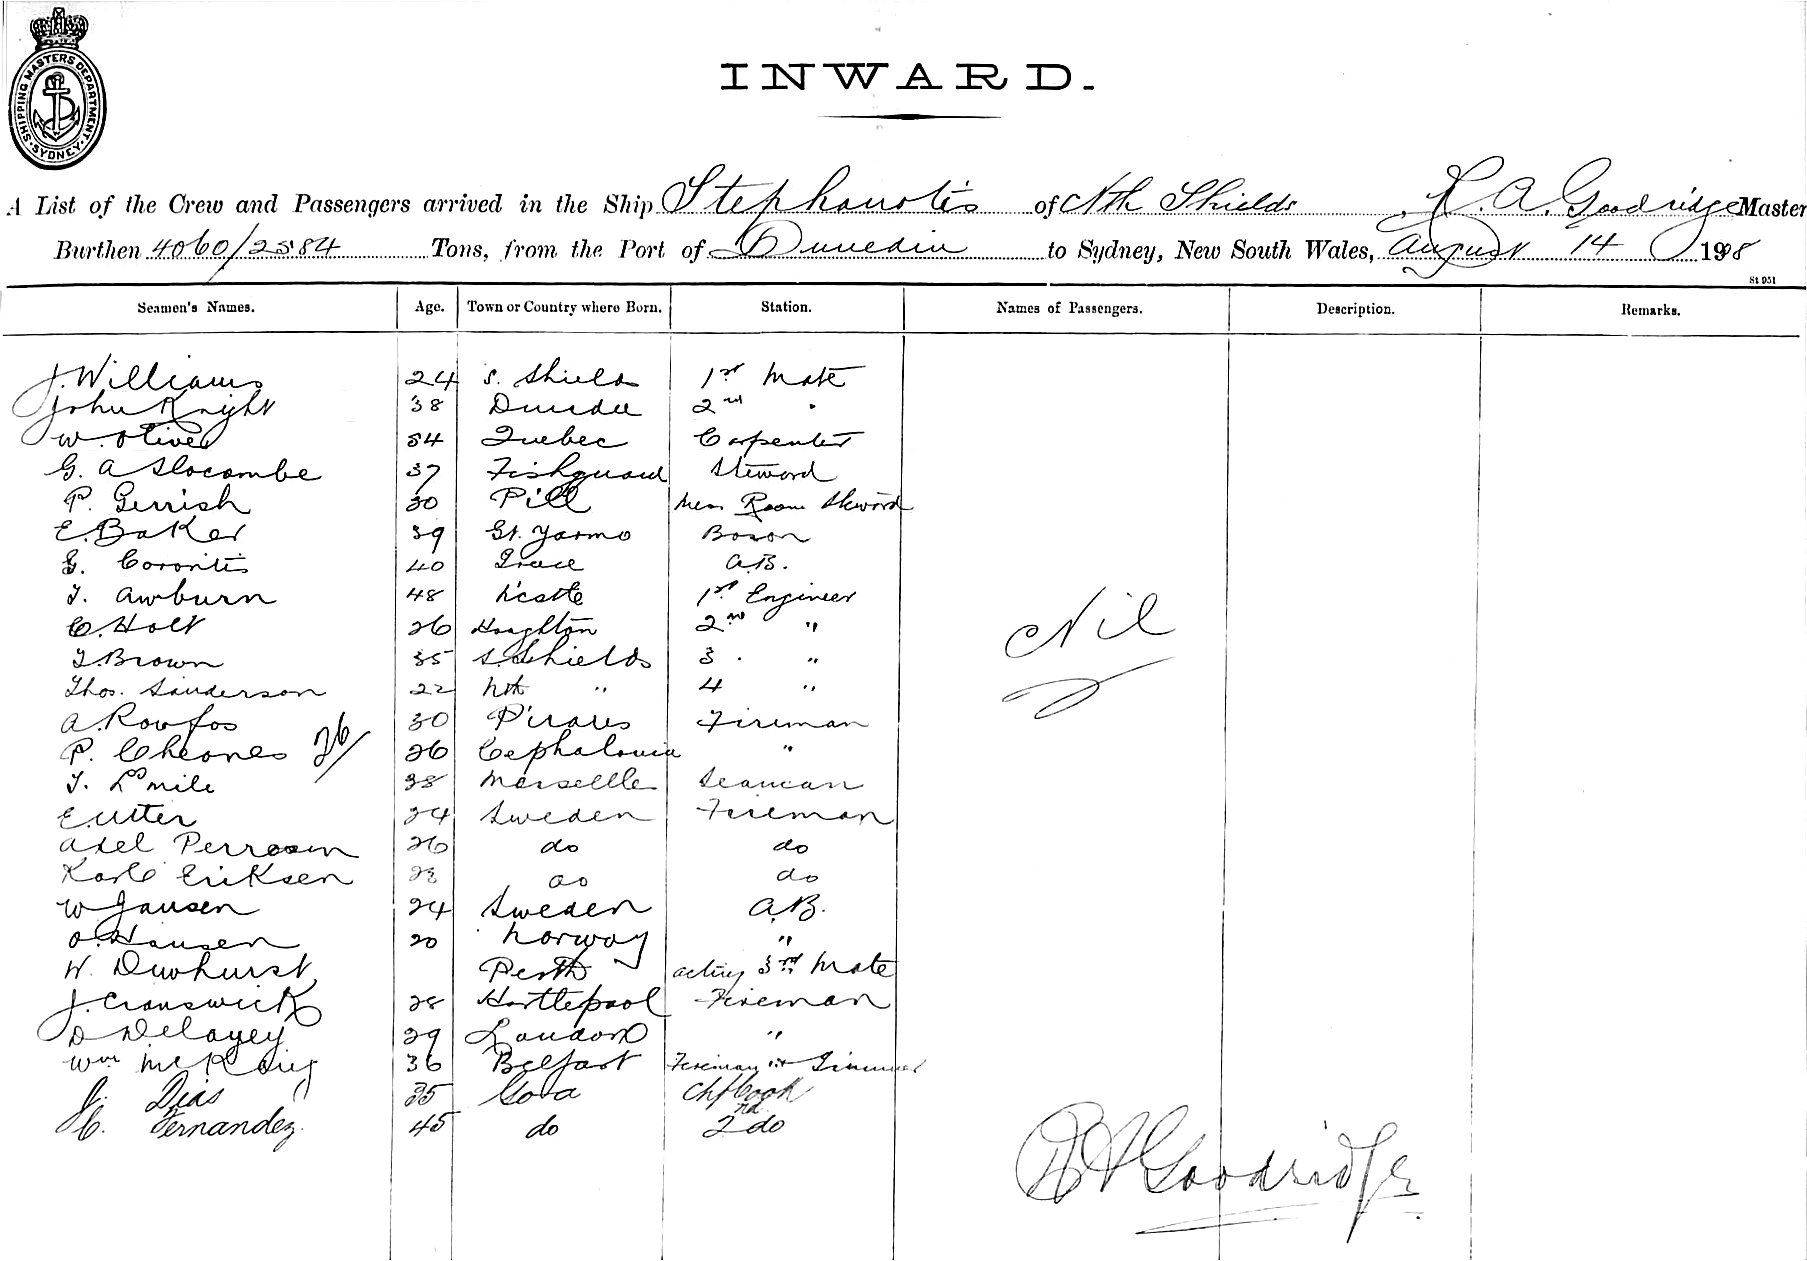 SHIPPING MASTERS DEPARTMENT
· SYDNEY ·
INWARD.
A List of the Crew and Passengers arrived in the Ship Stephanotis of Nth Shields R. A. Goodridge Master
Burthen 4060/2584 Tons, from the Port of Dunedin to Sydney, New South Wales, August 14 1908
St 951
Seamen's Names. Age. Town or Country where Born. Station. Names of Passengers. Description. Remarks.
J. Williams 24 S. Shields 1st Mate
John Knight 38 Dundee 2nd "
W. Oliver 54 Quebec Carpenter
G. A Slocombe 37 Fishguard Steward
P. Gerrish 30 Pill Mess Room Steward
E. Baker 39 Gt. Yarmo Bosun
G. Corontis 40 Greece A.B.
T. Awburn 48 N'castle 1st Engineer
C. Holt 26 Houghton 2nd "
T. Brown 35 S. Shields 3 . "
Thos. Sanderson 22 Nth " 4 "
Nil
A. Roufos 30 Piraus Fireman
P. Cheones 26/ 26 Cephalonia "
T. Emile 38 Marseille Seaman
E. Utter 24 Sweden Fireman
Axel Persson 26 do do
Karl Eriksen 23 do do
W Jansen 24 Sweden A.B.
O. Hansen 20 Norway "
W. Dewhurst Perth acting 3rd Mate
J. Cranswick 28 Hartlepool Fireman
D Delaney 29 London "
Wm McKaig 36 Belfast Fireman & Trimmer
J. Dias 35 Goa Chf Cook
C. Fernandez 45 do 2nd do
R A Goodridge